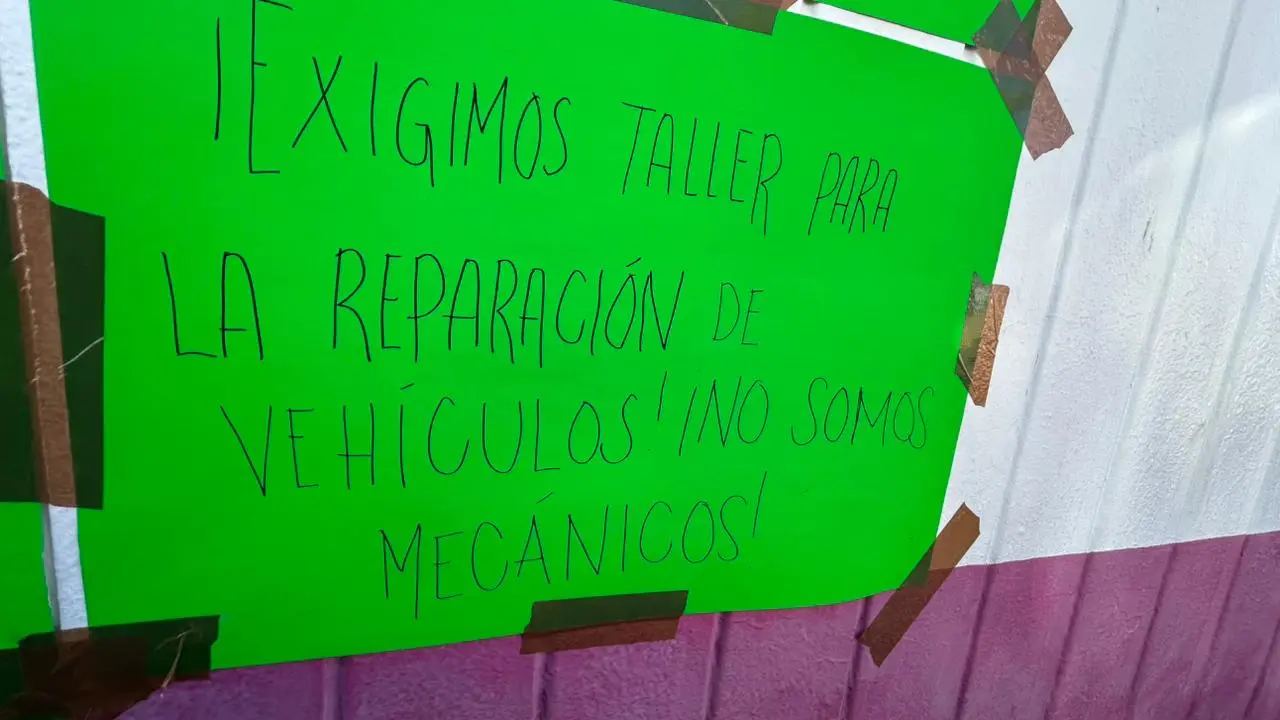 ¡EXIGIMOS TALLER PARA
LA REPARACIÓN DE
VEHÍCULOS! ¡NO SOMOS
MECÁNICOS!